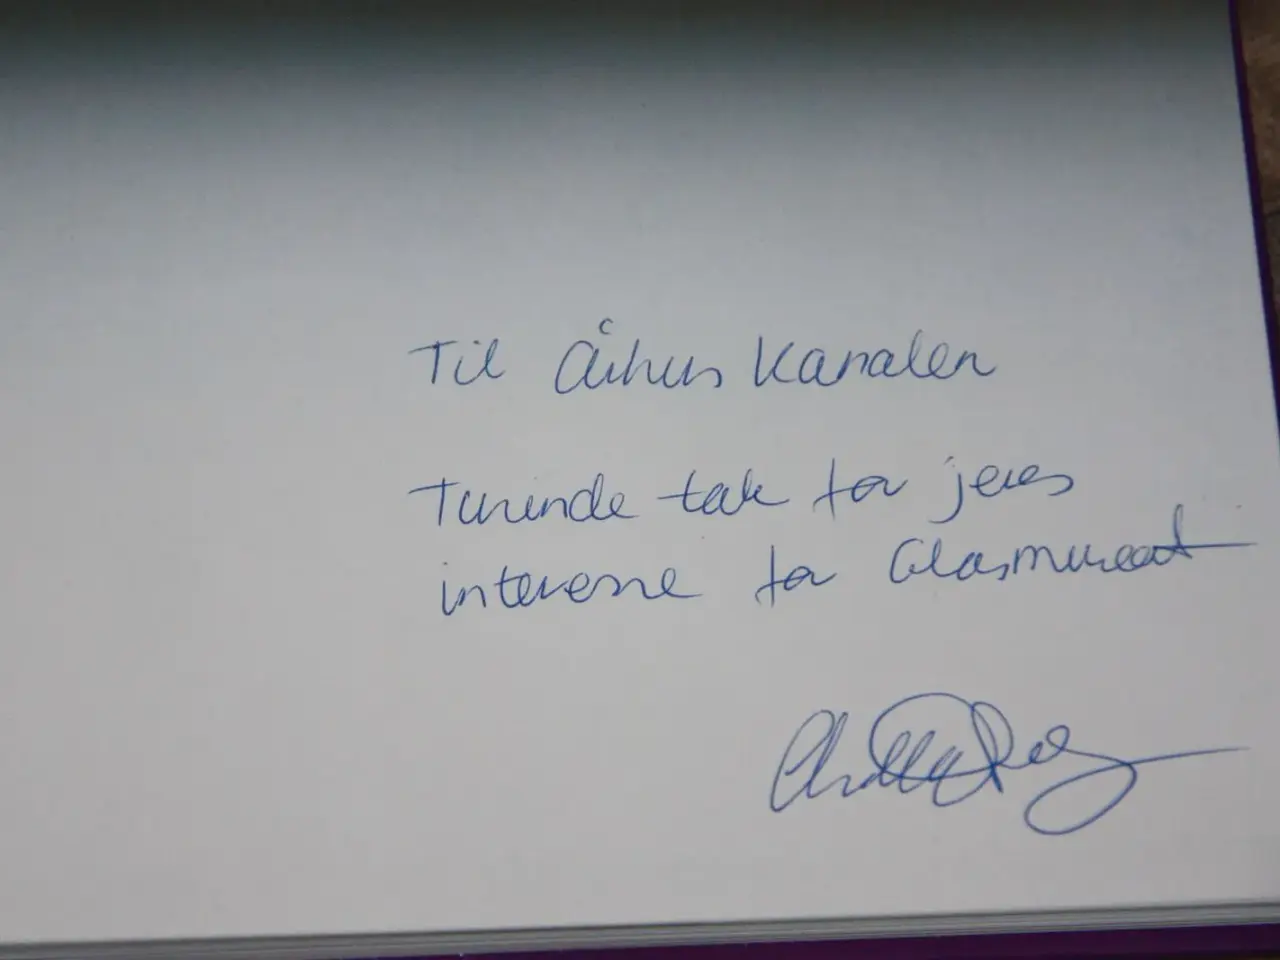 Til Århus Kanalen
Tusinde tak for jeres
interesse for Glasmuseet